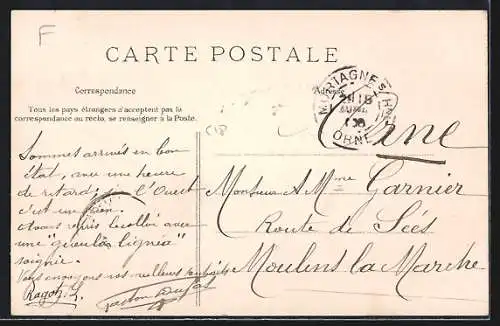 F
CARTE POSTALE
Correspondance
Adresse
Tous les pays étrangers n'acceptent pas la
correspondance au recto, se renseigner à la Poste.
MORTAGNE S/HNE
ORNE
Orne
Sommes arrivés en bon
état, avec une heure
de retard; L'Ouest
c'est un
avec
une
soignée.
Vous envoyons nos meilleurs
Ragot. L.
Gaston
Monsieur & Mme Garnier
Route de Sées
Moulins la Marche